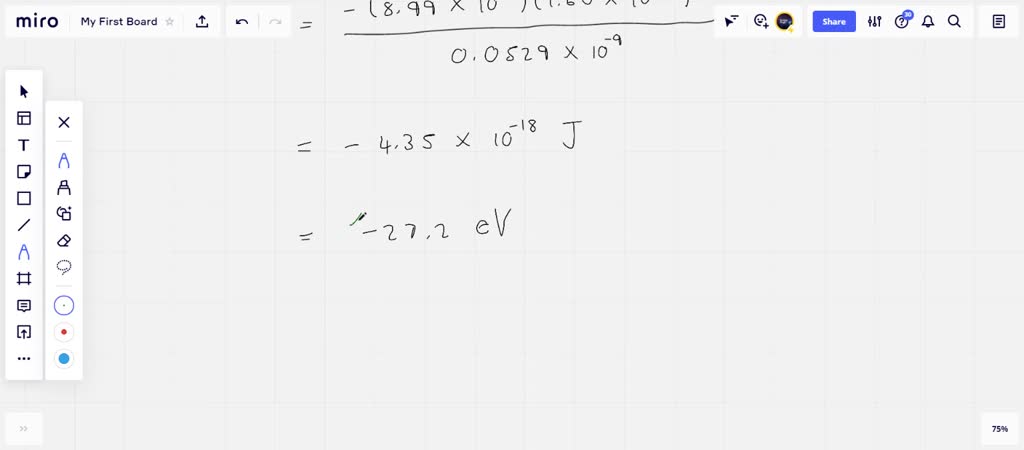 miro My First Board Share 
= - (8.99 × 10
0.0529 × 10⁻⁹
= - 4.35 × 10⁻¹⁸ J
= -27.2 eV
75%